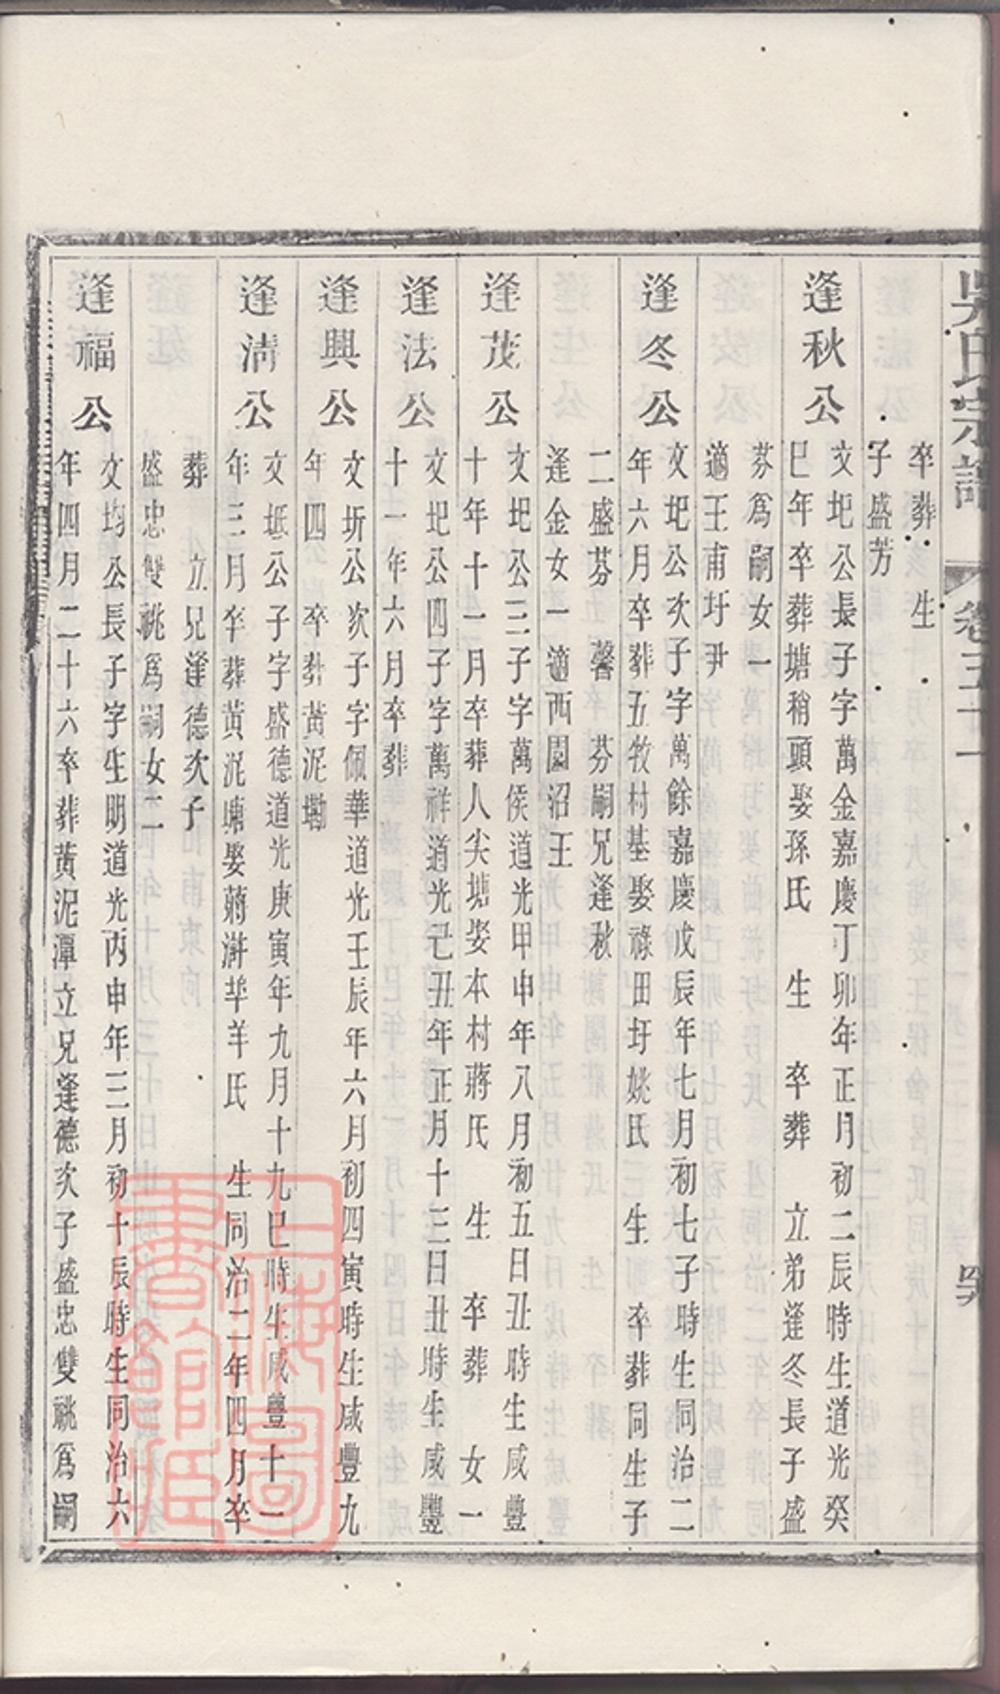 吳氏宗譜 卷五十一
卒葬 生
子盛芳
逢秋公
文圯公長子字萬金嘉慶丁卯年正月初二辰時生道光癸
巳年卒葬塘稍頭娶孫氏 生 卒葬 立弟逢冬長子盛
芬爲嗣女一
適王甫圩尹
逢冬公
文圯公次子字萬餘嘉慶戊辰年七月初七子時生同治二
年六月卒葬五牧村基娶祿田圩姚氏 生 卒葬同生子
二盛芬 馨 芬嗣兄逢秋
逢金女一適西園沼王
逢茂公
文圯公三子字萬侯道光甲申年八月初五日丑時生咸豐
十年十一月卒葬人尖塘娶本村蔣氏 生 卒葬 女一
逢法公
文圯公四子字萬祥道光己丑年正月十三日丑時生咸豐
十一年六月卒葬
逢興公
文圻公次子字佩華道光壬辰年六月初四寅時生咸豐九
年四 卒葬黃泥墈
逢清公
文坻公子字盛德道光庚寅年九月十九巳時生咸豐十一
年三月卒葬黃泥塘娶蔣滸芈羊氏 生同治二年四月卒
葬 立兄逢德次子
盛忠雙祧爲嗣女二
逢福公
文均公長子字生明道光丙申年三月初十辰時生同治六
年四月二十六卒葬黃泥潭立兄逢德次子盛忠雙祧爲嗣